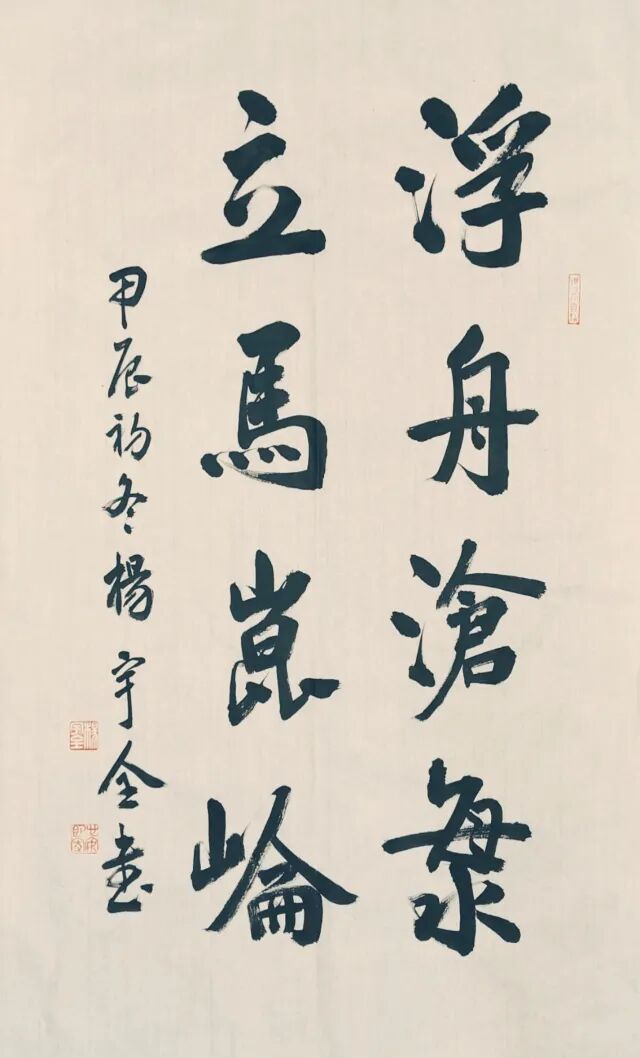 浮舟滄海
立馬崑崙
甲辰初冬楊宇全書